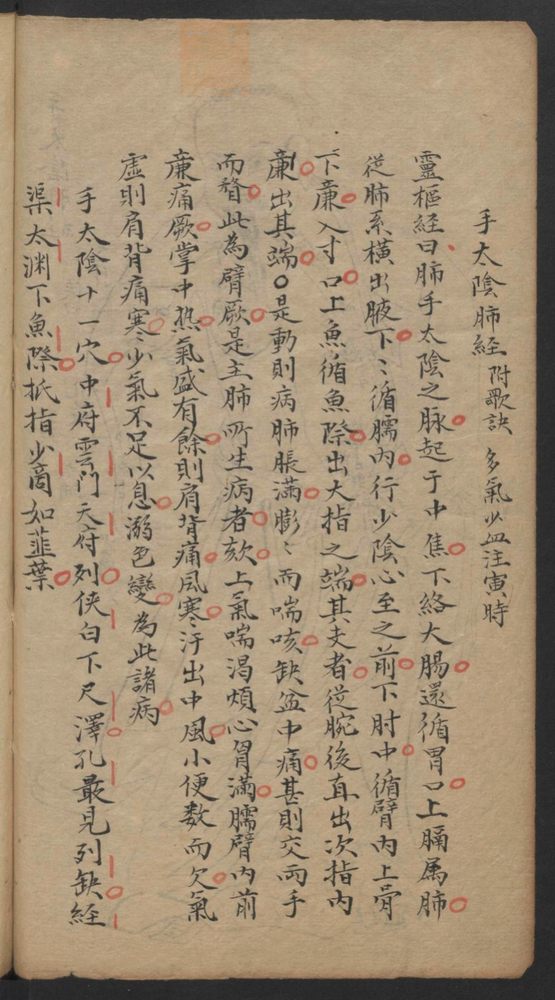 手太陰肺經 附歌訣 多氣少血注寅時
靈樞經曰肺手太陰之脉起于中焦下絡大腸還循胃口上膈属肺
從肺系橫出腋下〻循臑内行少陰心至之前下肘中循臂内上骨
下廉入寸口上魚循魚際出大指之端其支者從腕後直出次指内
廉出其端〇是動則病肺脹滿膨〻而喘咳缺盆中痛甚則交兩手
而瞀此為臂厥是主肺所生病者欬上氣喘渴煩心胷滿臑臂内前
廉痛厥掌中热氣盛有餘則肩背痛風寒汗出中風小便数而欠氣
虛則肩背痛寒少氣不足以息溺色變為此諸病
手太陰十一穴中府雲門天府列俠白下尺澤孔最見列缺經
渠太渊下魚際抵指少商如韮葉